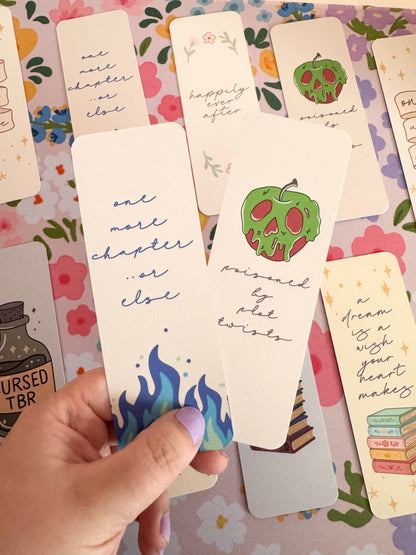 one
more
chapter
..or
else
happily
ever
after
poisoned
by
one
more
chapter
..or
else
poisoned
by
plot
twists
CURSED
TBR
a
dream
is a
wish
your
heart
makes